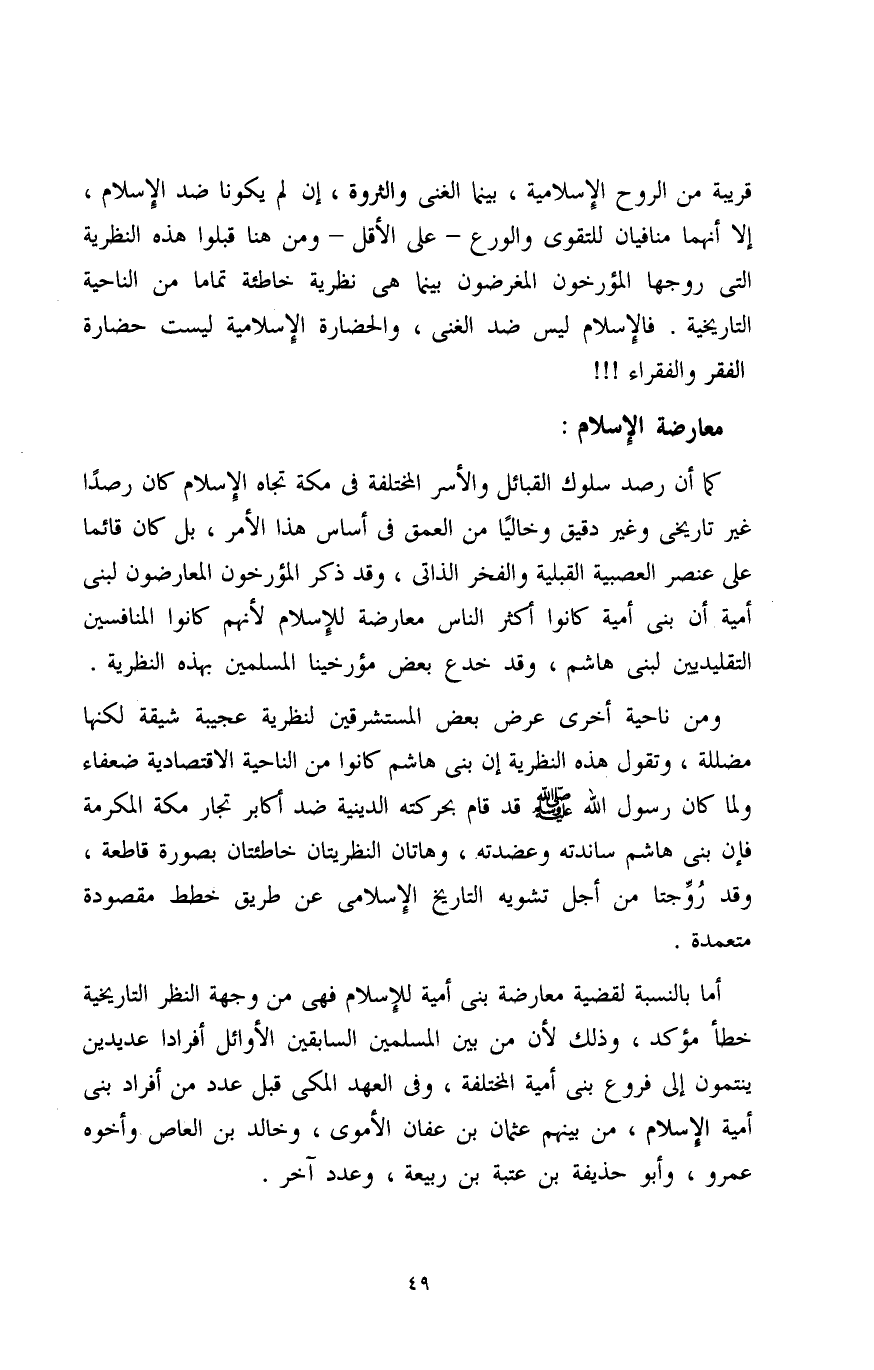 قريبة من الروح الإسلامية ، بينما الغنى والثروة ، إن لم يكونا ضد الإسلام ،
إلا أنهما منافيان للتقوى والورع – على الأقل – ومن هنا قبلوا هذه النظرية
التى روجها المؤرخون المغرضون بينما هى نظرية خاطئة تماما من الناحية
التاريخية . فالإسلام ليس ضد الغنى ، والحضارة الإسلامية ليست حضارة
الفقر والفقراء !!!
معارضة الإسلام :
كما أن رصد سلوك القبائل والأسر المختلفة فى مكة تجاه الإسلام كان رصدًا
غير تاريخى وغير دقيق وخاليًا من العمق فى أساس هذا الأمر ، بل كان قائما
على عنصر العصبية القبلية والفخر الذاتى ، وقد ذكر المؤرخون المعارضون لبنى
أمية أن بنى أمية كانوا أكثر الناس معارضة للإسلام لأنهم كانوا المنافسين
التقليديين لبنى هاشم ، وقد خدع بعض مؤرخينا المسلمين بهذه النظرية .
ومن ناحية أخرى عرض بعض المستشرقين لنظرية عجيبة شيقة لكنها
مضللة ، وتقول هذه النظرية إن بنى هاشم كانوا من الناحية الاقتصادية ضعفاء
ولما كان رسول الله ﷺ قد قام بحركته الدينية ضد أكابر تجار مكة المكرمة
فإن بنى هاشم ساندته وعضدته ، وهاتان النظريتان خاطئتان بصورة قاطعة ،
وقد رُوِّجتا من أجل تشويه التاريخ الإسلامى عن طريق خطط مقصودة
متعمدة .
أما بالنسبة لقضية معارضة بنى أمية للإسلام فهى من وجهة النظر التاريخية
خطأ مؤكد ، وذلك لأن من بين المسلمين السابقين الأوائل أفرادا عديدين
ينتمون إلى فروع بنى أمية المختلفة ، وفى العهد المكى قبل عدد من أفراد بنى
أمية الإسلام ، من بينهم عثمان بن عفان الأموى ، وخالد بن العاص وأخوه
عمرو ، وأبو حذيفة بن عتبة بن ربيعة ، وعدد آخر .
٤٩